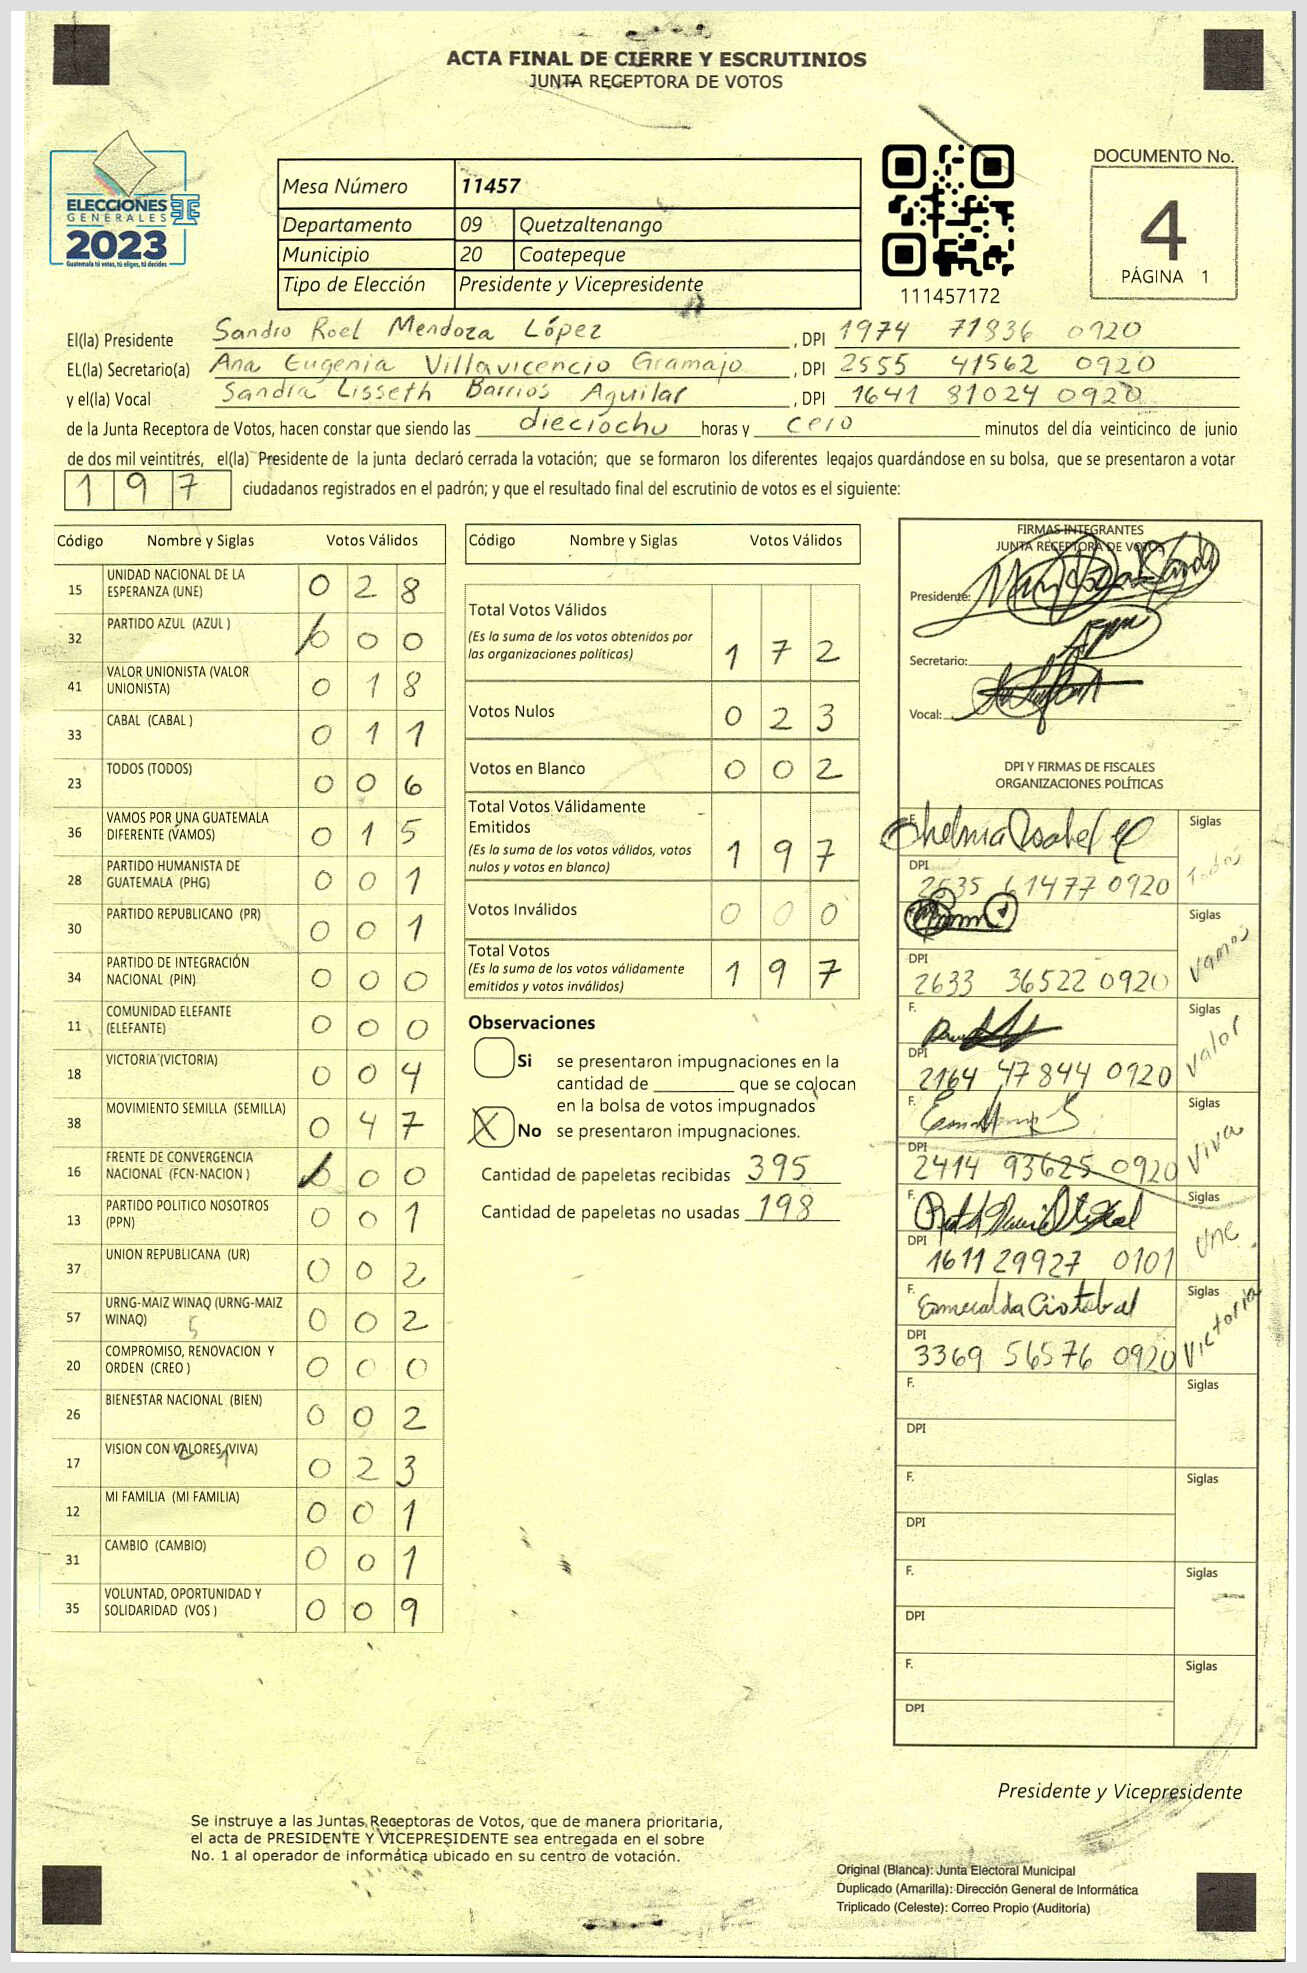 ACTA FINAL DE CIERRE Y ESCRUTINIOS
JUNTA RECEPTORA DE VOTOS
ELECCIONES
GENERALES
2023
Guatemala tú votas, tú eliges, tú decides
Mesa Número 11457
Departamento 09 Quetzaltenango
Municipio 20 Coatepeque
Tipo de Elección Presidente y Vicepresidente
111457172
DOCUMENTO No.
4
PÁGINA 1
El(la) Presidente Sandro Roel Mendoza López, DPI 1974 71836 0920
EL(la) Secretario(a) Ana Eugenia Villavicencio Gramajo, DPI 2555 41562 0920
y el(la) Vocal Sandra Lisseth Barrios Aguilar, DPI 1641 81024 0920
de la Junta Receptora de Votos, hacen constar que siendo las dieciocho horas y cero minutos del día veinticinco de junio
de dos mil veintitrés, el(la) Presidente de la junta declaró cerrada la votación; que se formaron los diferentes legajos quardándose en su bolsa, que se presentaron a votar
197 ciudadanos registrados en el padrón; y que el resultado final del escrutinio de votos es el siguiente:
Código Nombre y Siglas Votos Válidos
15 UNIDAD NACIONAL DE LA ESPERANZA (UNE) 028
32 PARTIDO AZUL (AZUL ) 000
41 VALOR UNIONISTA (VALOR UNIONISTA) 018
33 CABAL (CABAL ) 011
23 TODOS (TODOS) 006
36 VAMOS POR UNA GUATEMALA DIFERENTE (VAMOS) 015
28 PARTIDO HUMANISTA DE GUATEMALA (PHG) 001
30 PARTIDO REPUBLICANO (PR) 001
34 PARTIDO DE INTEGRACIÓN NACIONAL (PIN) 000
11 COMUNIDAD ELEFANTE (ELEFANTE) 000
18 VICTORIA (VICTORIA) 004
38 MOVIMIENTO SEMILLA (SEMILLA) 047
16 FRENTE DE CONVERGENCIA NACIONAL (FCN-NACION ) 000
13 PARTIDO POLITICO NOSOTROS (PPN) 001
37 UNION REPUBLICANA (UR) 002
57 URNG-MAIZ WINAQ (URNG-MAIZ WINAQ) 002
5
20 COMPROMISO, RENOVACION Y ORDEN (CREO ) 000
26 BIENESTAR NACIONAL (BIEN) 002
17 VISION CON VALORES (VIVA) 023
12 MI FAMILIA (MI FAMILIA) 001
31 CAMBIO (CAMBIO) 001
35 VOLUNTAD, OPORTUNIDAD Y SOLIDARIDAD (VOS ) 009
Código Nombre y Siglas Votos Válidos
Total Votos Válidos
(Es la suma de los votos obtenidos por
las organizaciones políticas) 172
Votos Nulos 023
Votos en Blanco 002
Total Votos Válidamente
Emitidos
(Es la suma de los votos válidos, votos
nulos y votos en blanco) 197
Votos Inválidos 000
Total Votos
(Es la suma de los votos válidamente
emitidos y votos inválidos) 197
Observaciones
Si se presentaron impugnaciones en la
cantidad de ________ que se colocan
en la bolsa de votos impugnados
X No se presentaron impugnaciones.
Cantidad de papeletas recibidas 395
Cantidad de papeletas no usadas 198
FIRMAS INTEGRANTES
JUNTA RECEPTORA DE VOTOS
Presidente:
Secretario:
Vocal:
DPI Y FIRMAS DE FISCALES
ORGANIZACIONES POLÍTICAS
Siglas Todos
DPI
2535 61477 0920
Siglas Vamos
DPI
2633 36522 0920
F. Siglas Valor
DPI
2164 47844 0920
F. Siglas Viva
DPI
2414 93625 0920
F. Siglas Une
DPI
1611 29927 0101
F. Esmeralda Cristobal Siglas Victoria
DPI
3369 56576 0920
F. Siglas
DPI
F. Siglas
DPI
F. Siglas
DPI
F. Siglas
DPI
Presidente y Vicepresidente
Se instruye a las Juntas Receptoras de Votos, que de manera prioritaria,
el acta de PRESIDENTE Y VICEPRESIDENTE sea entregada en el sobre
No. 1 al operador de informática ubicado en su centro de votación.
Original (Blanca): Junta Electoral Municipal
Duplicado (Amarilla): Dirección General de Informática
Triplicado (Celeste): Correo Propio (Auditoría)